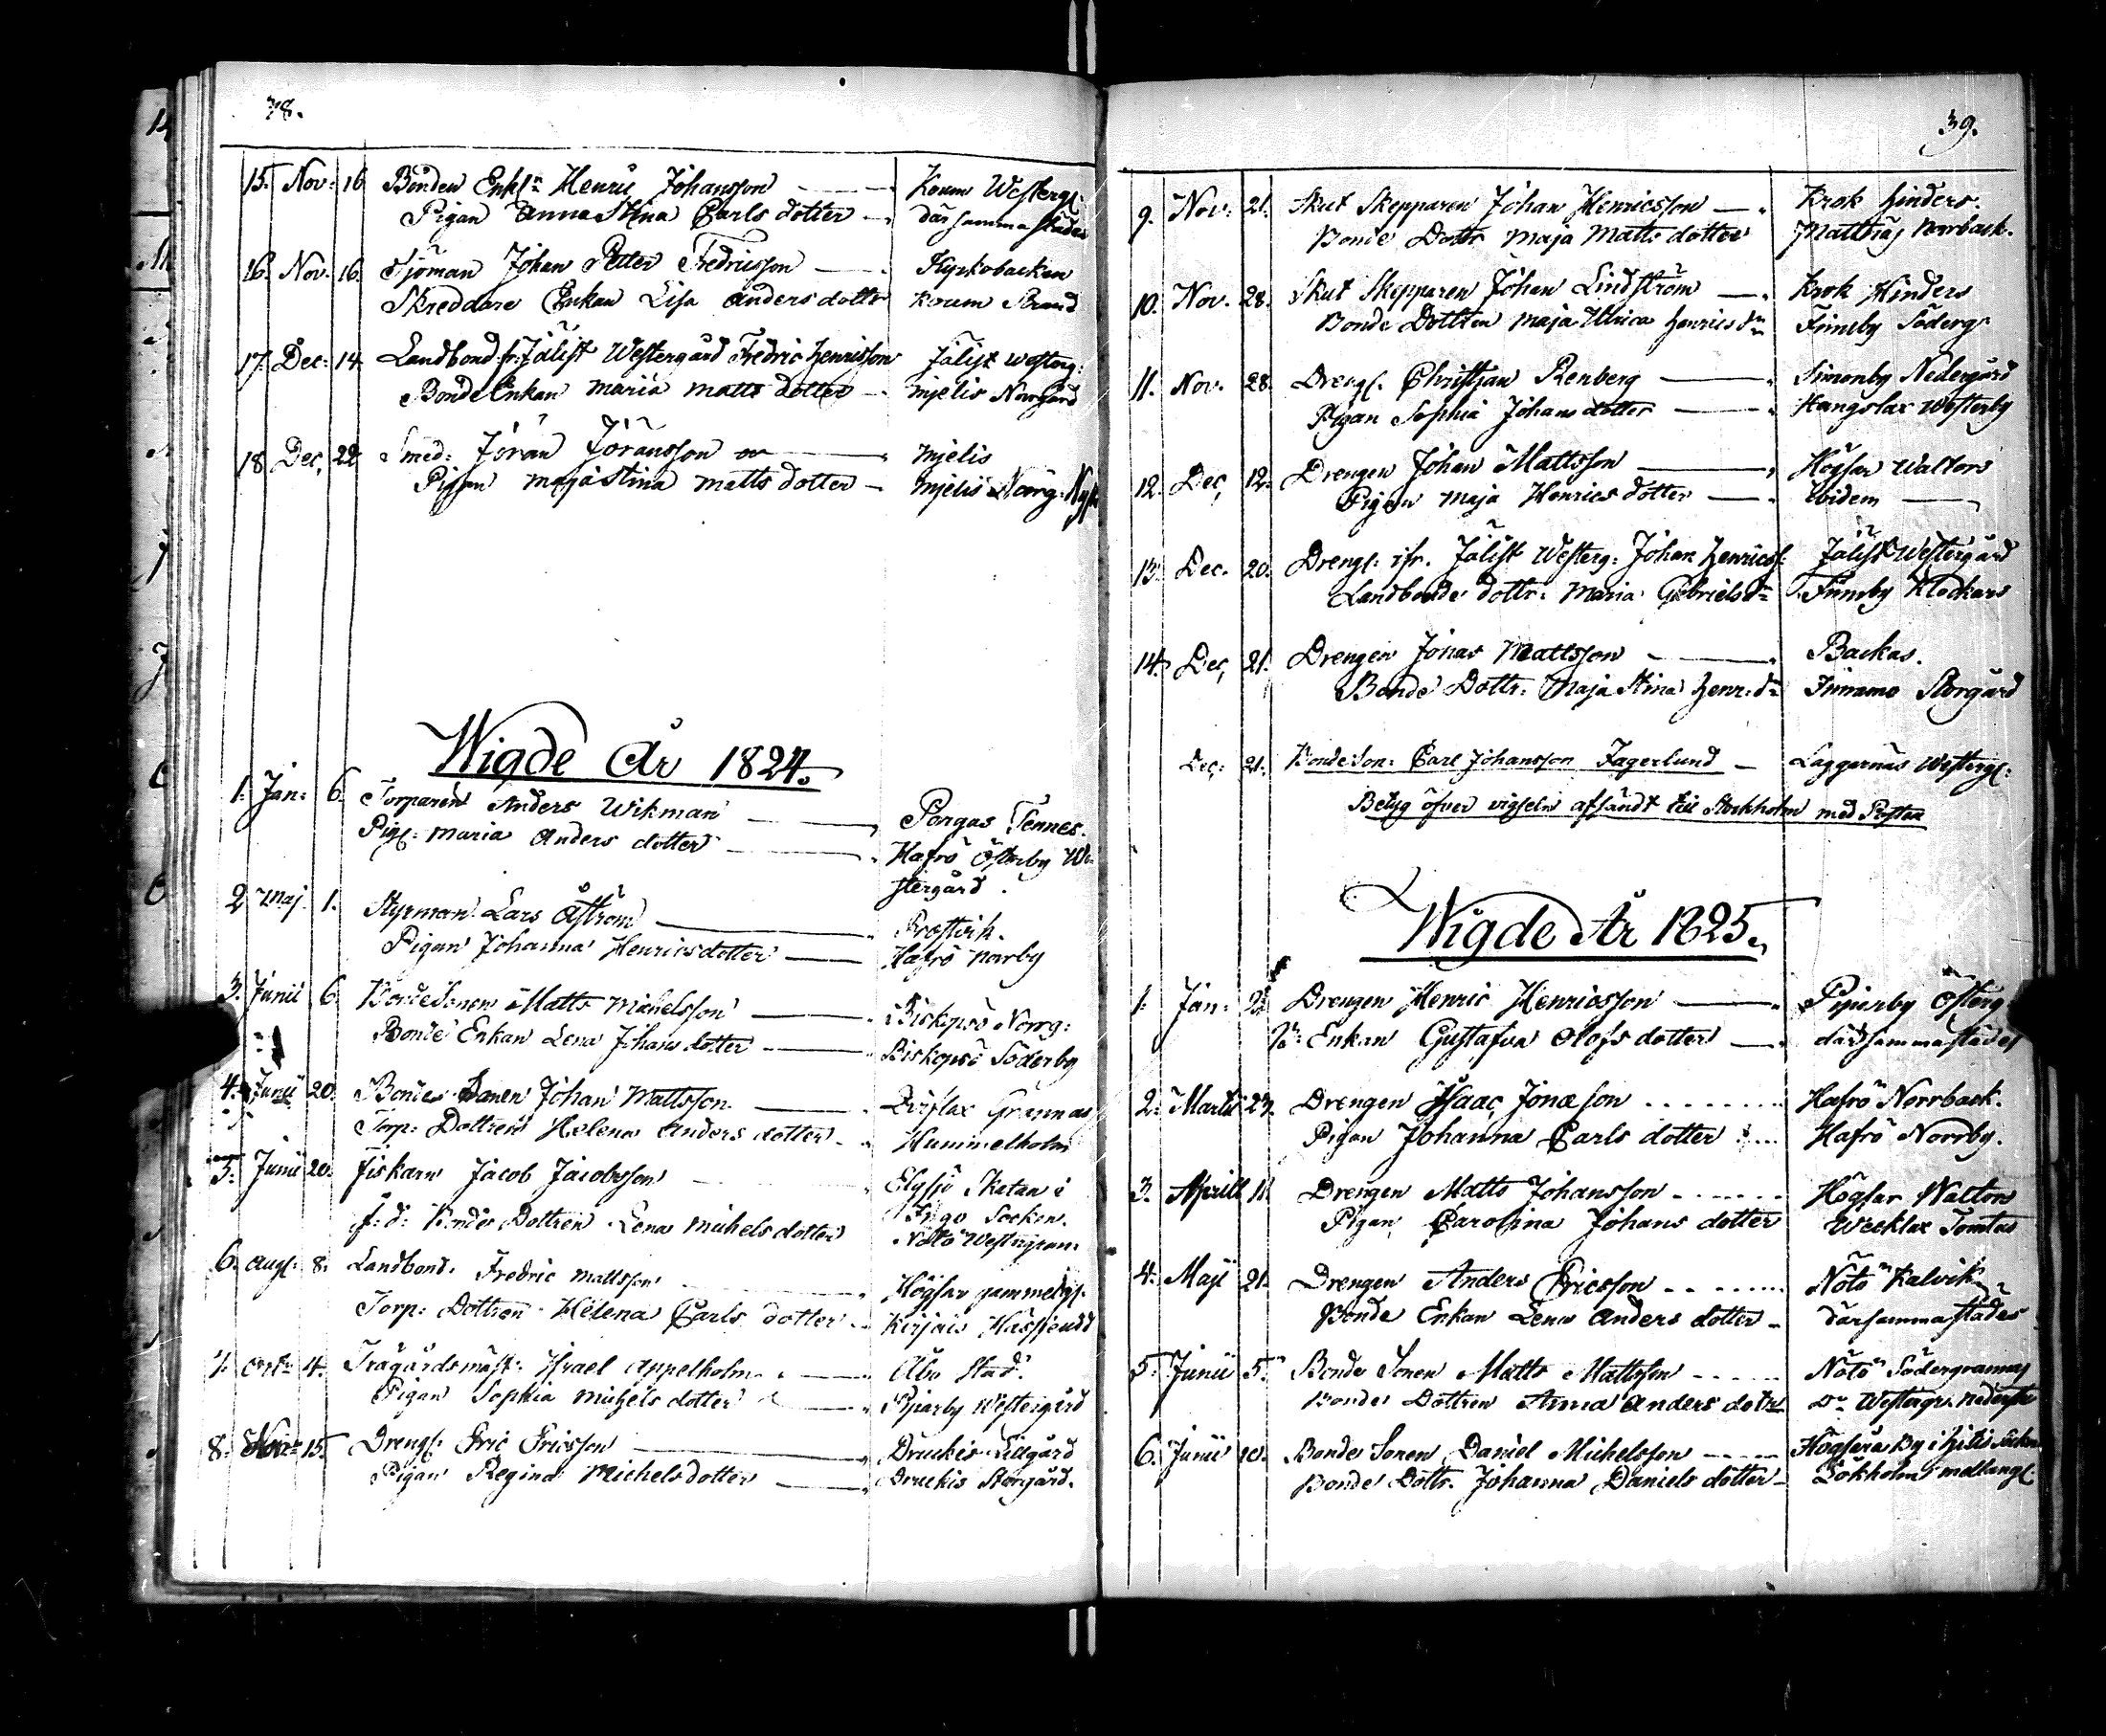 38.
15. Nov: 16 Bonden Enkl:n Henric Johansson Korum Westerg:
Pigan Anna Stina Carls dotter därsammastädes
16. Nov. 16. Sjöman Johan Petter Fredricsson Kyrkobacken
Skreddare Enkan Lisa Anders dottr Korum Strand
17. Dec: 14. Landbond. fr: Jälist Westergård Fredric Henricsson Jälist Westerg:
Bonde Enkan Maria Matts dotter Mjelis Norrgård
18 Dec, 22 Smed: Jöran Jöransson Mjelis
Pigan Maja Stina Matts dotter Mjelis Norrg:
Wigde År 1824.
1. Jan: 6. Torparen Anders Wikman Pargas Tennes.
Pig: Maria Anders dotter Hafrö Österby We-
stergård.
2 Maj 1. Styrman Lars Åström Prostvik.
Pigan Johanna Henricsdotter Hafrö Norrby
3. Junii 6. Bondesonen Matts Michelsson Biskopsö Norrg:
Bonde Enkan Lena Johans dotter Biskopsö Söderby
4. Junii 20. Bonde Sonen Johan Mattsson Grännas
Torp: Dottren Helena Anders dotter Hummelholm
5. Junii 20. Fiskarn Jacob Jacobsson Elgsjö Skatan i
Ingo Socken.
f: d: Bonde Dottren Lena Michels dotter Nötö Westergran:
6. Aug: 8. Landbond. Fredric Mattsson Högsar gammelg:
Torp: Dottren Helena Carls dotter Kirjais
7. Oct: 4. Trägårdsmäst: Israel Appelholm Åbo Stad.
Pigan Sophia Michels dotter Piparby Westergård
8. Nov: 15. Dreng: Eric Ericsson Druckis Lillgård
Pigan Regina Michelsdotter Druckis Storgård.
39.
9. Nov: 21. Skut Skepparen Johan Henricsson Krok Hinders.
Bonde Dottr Maja Matts dotter Mattnäs Norrback.
10. Nov. 28. Skut Skepparen Johan Lindström Krok Hinders
Bonde Dottren Maja Ulrica Henrics d:r Finnby Söderg:
11. Nov. 28. Dreng: Christian Renberg Simonby Nedergård
Pigan Sophia Johans dotter Hangslax Westerby
12. Dec, 12. Drengen Johan Mattsson Högsar Waltors
Pigan Maja Henrics dotter ibidem
13. Dec. 20. Dreng: ifr. Jälist Westerg: Johan Henrics: Jälist Westergård
Landbonde dottr: Maria Gabriels d:r Finnby Klockars
14. Dec, 21. Drengen Jonas Mattsson Backas.
Bonde Dottr: Maja Stina Henr: d:r Finnamo Storgård
Dec: 21. Bonde Son: Carl Johansson Fagerlund Laggarnäs Westerg:
Betyg öfver vigseln afsändt till Stockholm med Posten
Wigde År 1825.
1. Jan: Drengen Henric Henricsson Piparby Österg
Enkan Gustafva Olofs dotter därsammastädes
2. Martii 27. Drengen Isaac Jonæson Hafrö Norrback.
Pigan Johanna Carls dotter Hafrö Norrby.
3. Aprill 11. Drengen Matts Johansson Högsar Waltors
Pigan Carolina Johans dotter Wecklax Tomtas
4. Maji 21. Drengen Anders Ericsson Nötö Kalvik
Bonde Enkan Lena Anders dotter därsammastädes
5. Junii 5. Bonde Sonen Matts Mattsson Nötö Södergrannas
Bonde Dottren Anna Anders dotr D:o Westergr:
6. Junii 10. Bonde Sonen Daniel Michelsson Högsåra By i Hitis Socken
Bonde Dottr. Johanna Daniels dotter Lökholm mellang: